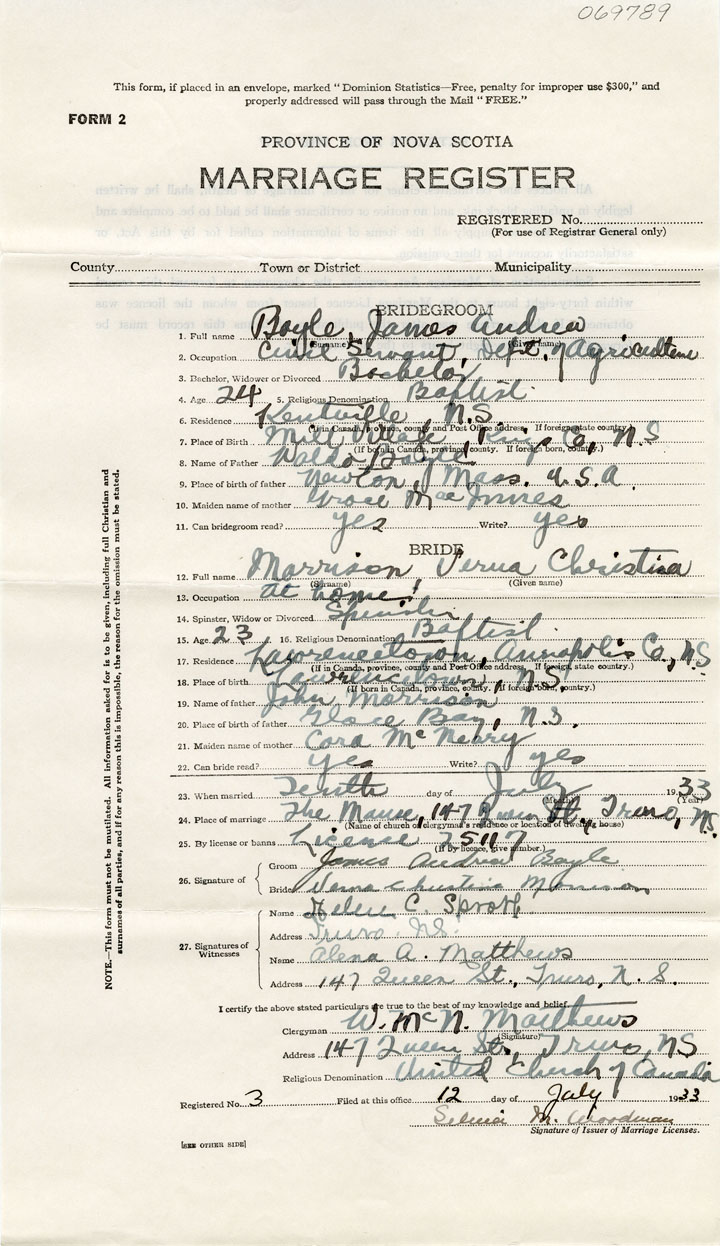 069789
This form, if placed in an envelope, marked "Dominion Statistics—Free, penalty for improper use $300," and
properly addressed will pass through the Mail "FREE."
FORM 2
PROVINCE OF NOVA SCOTIA
MARRIAGE REGISTER
REGISTERED No.
(For use of Registrar General only)
County Town or District Municipality
BRIDEGROOM
1. Full name Boyle, James Andrew
(Surname) (Given name)
2. Occupation Civil Servant, Dept. of Agriculture
3. Bachelor, Widower or Divorced Bachelor
4. Age 24 5. Religious Denomination Baptist
6. Residence Kentville N.S.
(If in Canada, province, county and Post Office address. If foreign, state country.)
7. Place of Birth Mill Village, Kings Co., N.S
(If born in Canada, province, county. If foreign born, country.)
8. Name of Father Waldo Boyle
9. Place of birth of father Newton, Mass. U.S.A.
10. Maiden name of mother Grace MacInnes
11. Can bridegroom read? yes Write? yes
BRIDE
12. Full name Morrison, Verna Christina
(Surname) (Given name)
13. Occupation at home
14. Spinster, Widow or Divorced Spinster
15. Age 23 16. Religious Denomination Baptist
17. Residence Lawrencetown, Annapolis Co., N.S
(If in Canada, province, county and Post Office address. If foreign, state country.)
18. Place of birth Lawrencetown, N.S.
(If born in Canada, province, county. If foreign born, country.)
19. Name of father John Morrison
20. Place of birth of father Glace Bay, N.S.
21. Maiden name of mother Cora McNeary
22. Can bride read? yes Write? yes
23. When married Tenth day of July 1933
(Month) (Year)
24. Place of marriage The Manse, 147 Queen St., Truro, N.S.
(Name of church or clergyman's residence or location of dwelling house)
25. By license or banns License 25117
(If by licence, give number.)
26. Signature of
Groom James Andrew Boyle
Bride Verna Christina Morrison
27. Signatures of Witnesses
Name Helen C. Sproft
Address Truro N.S.
Name Alena A. Matthews
Address 147 Queen St., Truro, N.S.
I certify the above stated particulars are true to the best of my knowledge and belief.
Clergyman W. McN. Matthews
(Signature)
Address 147 Queen St., Truro, NS
Religious Denomination United Church of Canada
Registered No. 3 Filed at this office 12 day of July 1933
M. Woodman
Signature of Issuer of Marriage Licenses.
[SEE OTHER SIDE]
NOTE.—This form must not be mutilated. All information asked for is to be given, including full Christian and
surnames of all parties, and if for any reason this is impossible, the reason for the omission must be stated.